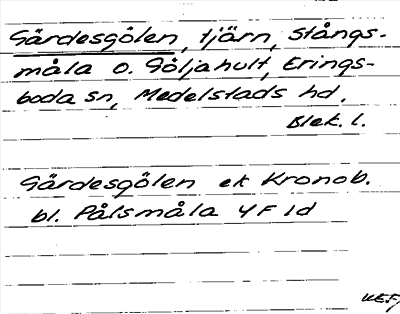 Gärdesgölen, tjärn, Stångs-
måla o. Göljahult, Erings-
boda sn, Medelstads hd,
Blek. l.
Gärdesgölen ek Kronob.
bl. Pålsmåla 4F 1d